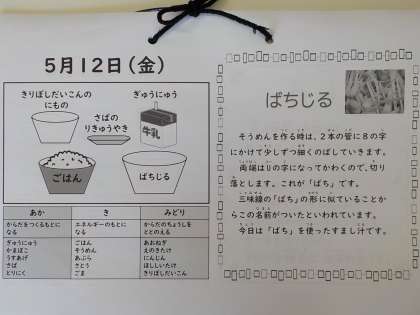 5月12日（金）
きりぼしだいこんの
にもの
ぎゅうにゅう
さばの
りきゅうやき
牛乳
ごはん
ばちじる
あか
き
みどり
からだをつくるもとに
なる
エネルギーのもとに
なる
からだのちょうしを
ととのえる
ぎゅうにゅう
かまぼこ
うすあげ
さば
とりにく
ごはん
そうめん
あぶら
さとう
ごま
あおねぎ
えのきたけ
にんじん
ほししいたけ
きりぼしだいこん
ばちじる
そうめんを作る時は、2本の管に8の字
にかけて少しずつ細くのばしていきます。
両端はUの字になってかわくので、切り
落とします。これが「ばち」です。
三味線の「ばち」の形に似ていることか
らこの名前がついたといわれています。
今日は「ばち」を使ったすまし汁です。